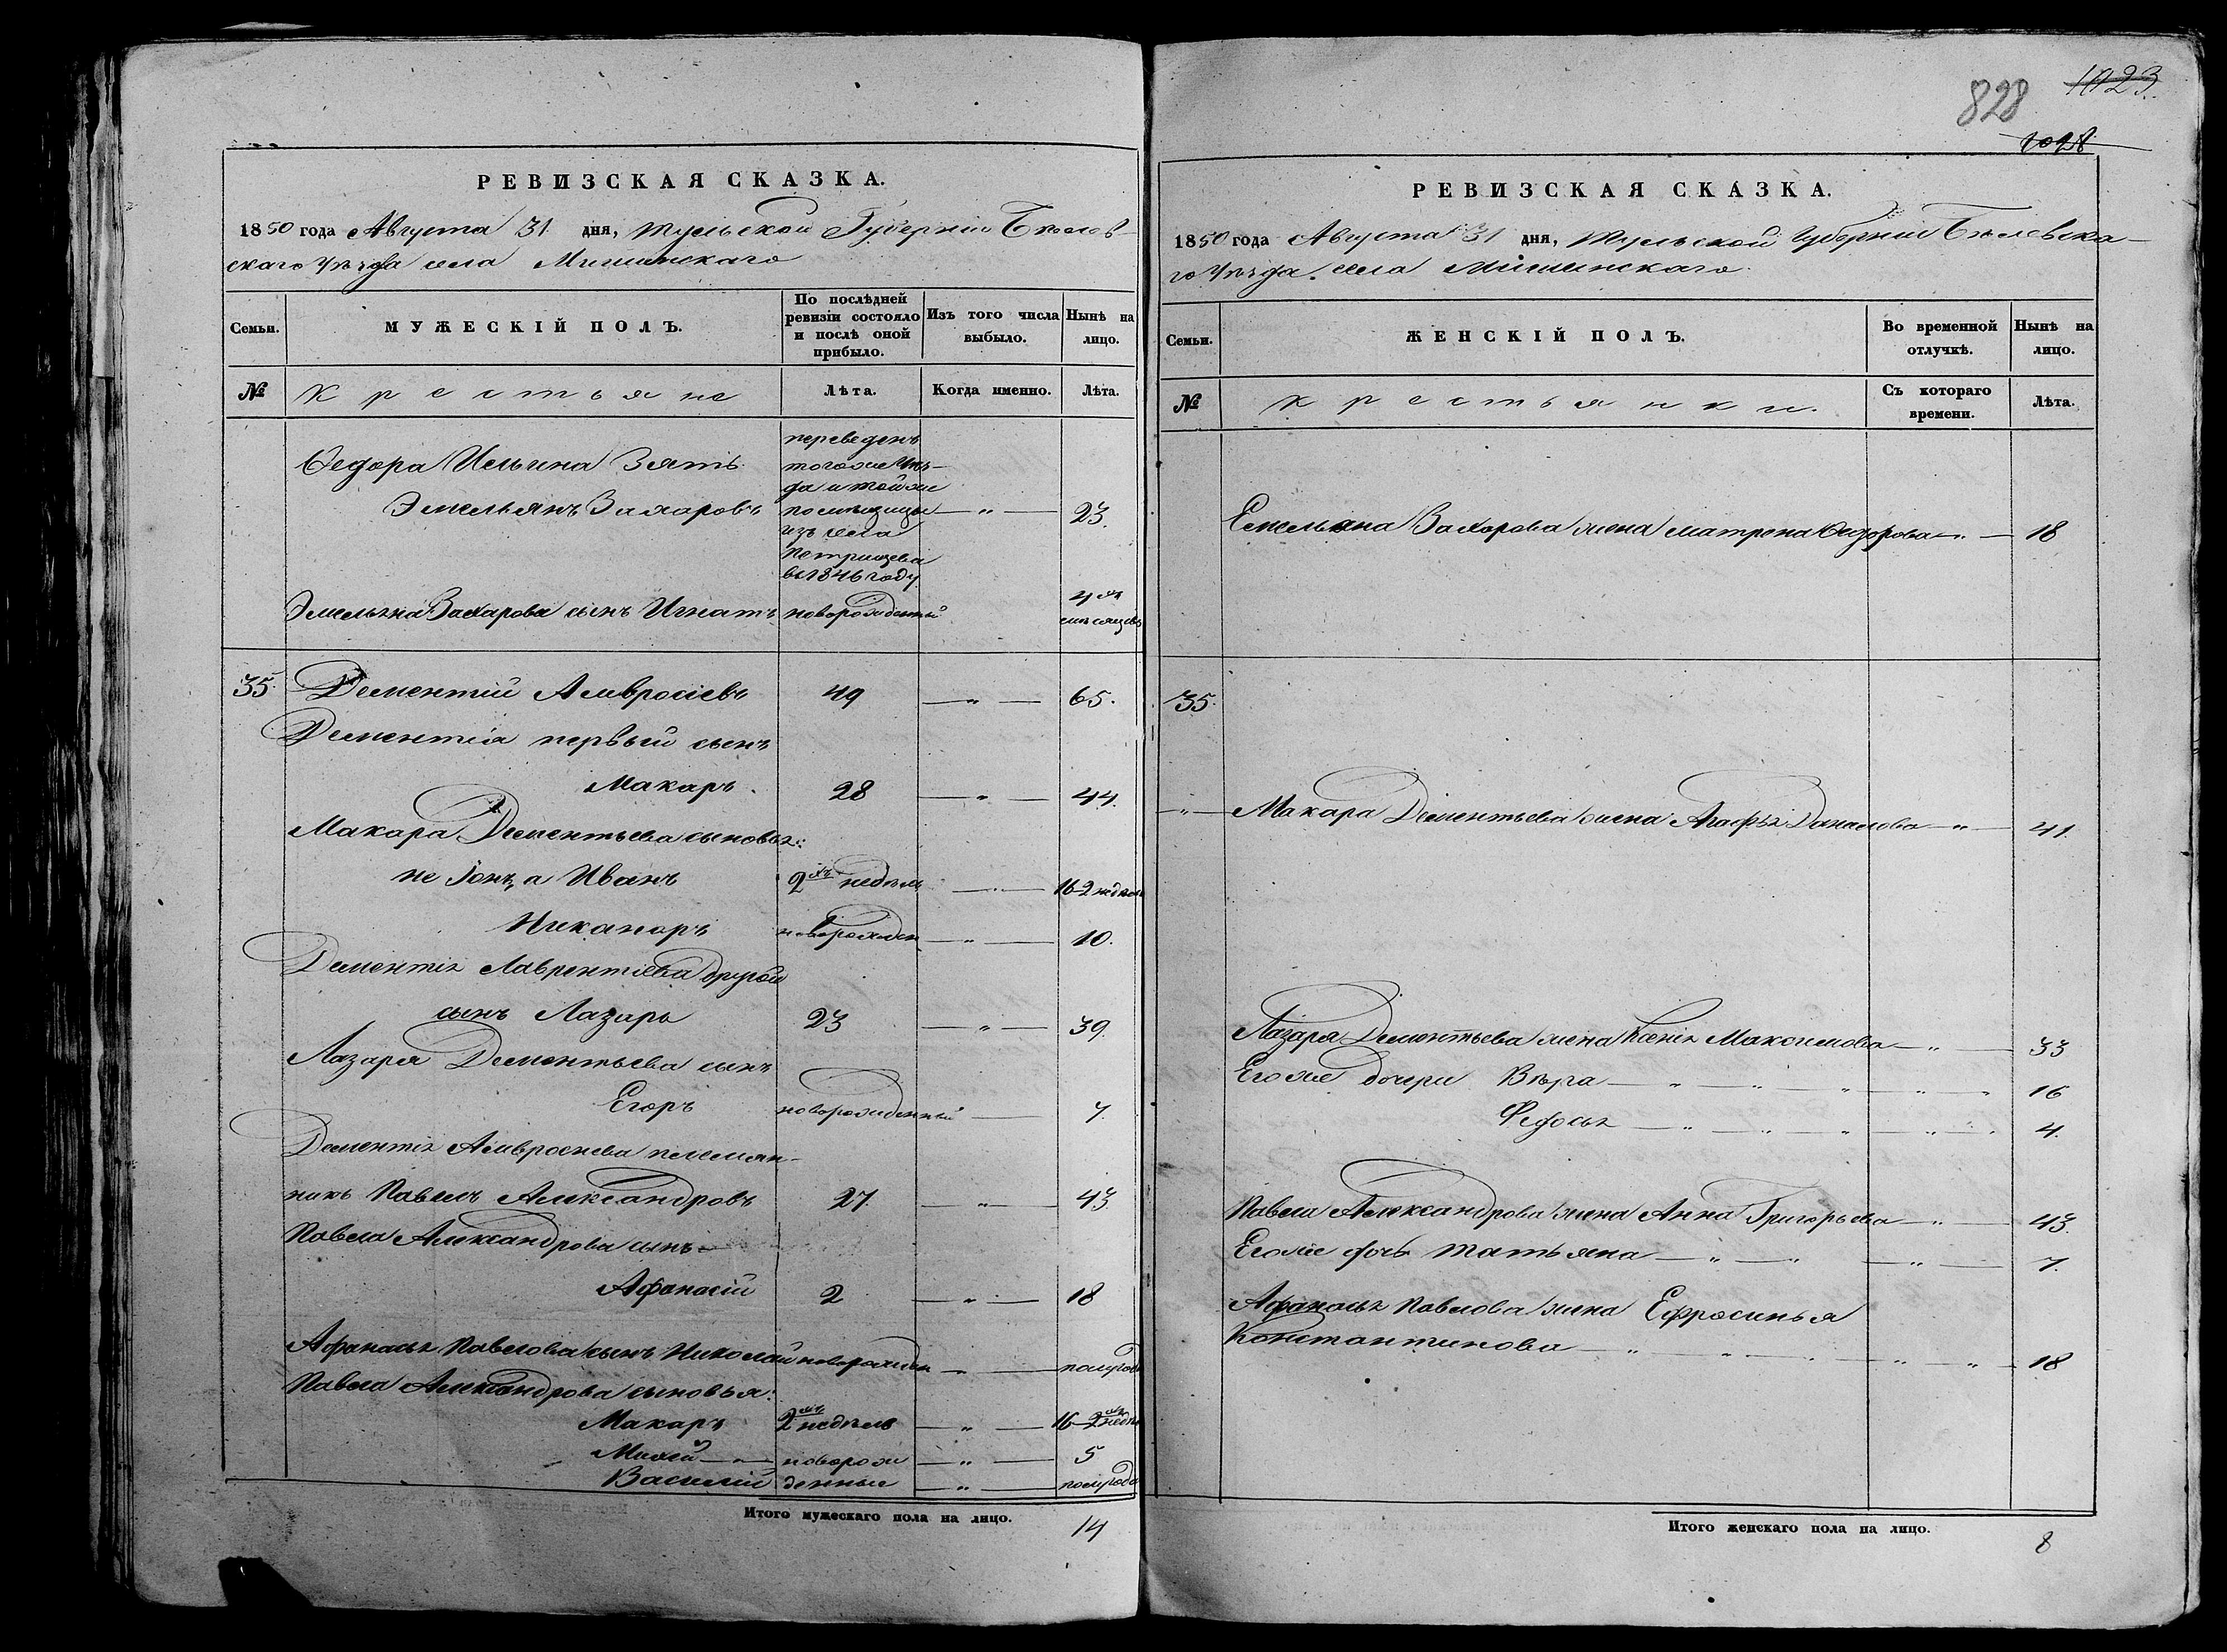 РЕВИЗСКАЯ СКАЗКА.
1850 года Августа 31 дня, Тульской Губерніи Бѣлев-
скаго Уѣзда села Мишинскаго
Семьи.
МУЖЕСКІЙ ПОЛЪ.
По послѣдней ревизіи состояло и послѣ оной прибыло.
Изъ того числа выбыло.
Нынѣ на лицо.
№
Крестьяне
Лѣта.
Когда именно.
Лѣта.
переведенъ
Федора Ильина Зять тогоже Уѣз-
да и тойже
Эмельянъ Захаровъ помѣщицы — " — 23.
изъ села
Петрищева
въ 1846 году
Эмельяна Захарова сынъ Игнатъ новорожденный 4 мѣсяцевъ
35. Дементій Амвросіевъ 49 — " — 65.
Дементія первый сынъ
Макаръ. 28 — " — 44.
Макара Дементьева сыновья:
не Іонъ, а Иванъ 2хъ недѣль — " — 16-2 недѣли
Никаноръ новорожден — " — 10.
Дементія Лаврентіева другой
сынъ Лазарь 23 — " — 39.
Лазаря Дементьева сынъ
Егоръ новорожденный — 7.
Дементія Амвросіева племян-
никъ Павелъ Александровъ 27. — " — 43.
Павла Александрова сынъ —
Афанасій 2 — " — 18
Афанасья Павлова сынъ Николай новорожден — " — полугода
Павла Александрова сыновья:
Макаръ 2хъ недѣль — " — 16-2хъ недѣль
Михей — " — новорож — " — 5
Василій денные — " — полугода
Итого мужескаго пола на лицо. 14
828 1023.
1028
РЕВИЗСКАЯ СКАЗКА.
1850 года Августа 31 дня, Тульской Губерніи Бѣлевска-
го Уѣзда села Мишинскаго.
Семьи.
ЖЕНСКІЙ ПОЛЪ.
Во временной отлучкѣ.
Нынѣ на лицо.
№
Крестьянки.
Съ котораго времени.
Лѣта.
Емельяна Захарова жена Матрена Федорова — " — 18
35.
— " — Макара Дементьева жена Агафья Данилова — " — 41.
Лазаря Дементьева жена Ксенія Максимова — " — 33
Егоже дочери Вѣра — " — " — " — " — " 16
Федосья — " — " — " — " — " 4.
Павла Александрова жена Анна Григорьева — " — 43.
Егоже дочь Татьяна — " — " — " — 7.
Афанасья Павлова жена Ефросинья
Константинова — " — " — " — " — " — 18
Итого женскаго пола на лицо. 8